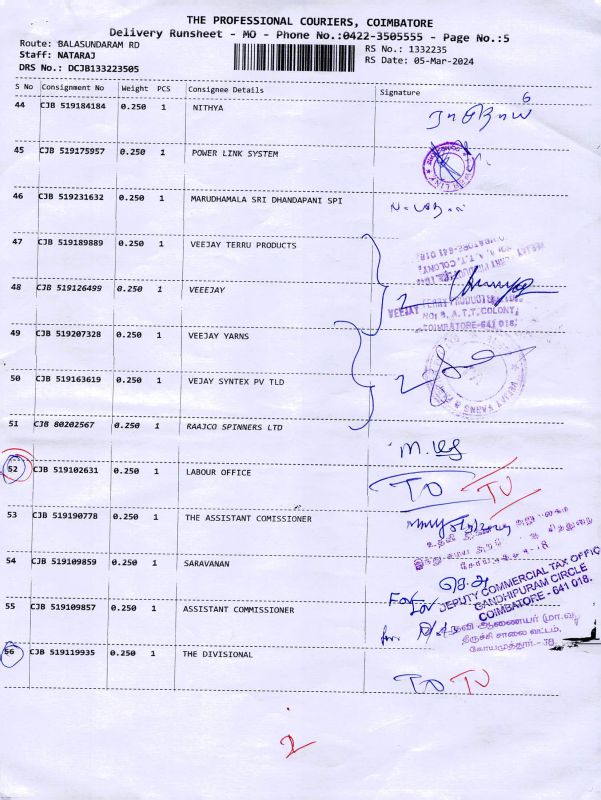 THE PROFESSIONAL COURIERS, COIMBATORE
Delivery Runsheet - MO - Phone No.:0422-3505555 - Page No.:5
Route: BALASUNDARAM RD
RS No.: 1332235
Staff: NATARAJ
RS Date: 05-Mar-2024
DRS No.: DCJB133223505
S No Consignment No Weight PCS Consignee Details Signature
6
44 CJB 519184184 0.250 1 NITHYA
45 CJB 519175957 0.250 1 POWER LINK SYSTEM
46 CJB 519231632 0.250 1 MARUDHAMALA SRI DHANDAPANI SPI
47 CJB 519189889 0.250 1 VEEJAY TERRU PRODUCTS
48 CJB 519126499 0.250 1 VEEEJAY
VEEJAY TERRY PRODUCTS
NO: 8, A.T.T. COLONY,
COIMBATORE-641 018.
49 CJB 519207328 0.250 1 VEEJAY YARNS
50 CJB 519163619 0.250 1 VEJAY SYNTEX PV TLD
51 CJB 80202567 0.250 1 RAAJCO SPINNERS LTD
52 CJB 519102631 0.250 1 LABOUR OFFICE
TO TV
53 CJB 519190778 0.250 1 THE ASSISTANT COMISSIONER
54 CJB 519109859 0.250 1 SARAVANAN
DEPUTY COMMERCIAL TAX OFFIC
GANDHIPURAM CIRCLE
COIMBATORE - 641 018.
55 CJB 519109857 0.250 1 ASSISTANT COMMISSIONER
for
56 CJB 519119935 0.250 1 THE DIVISIONAL
TO TV
2